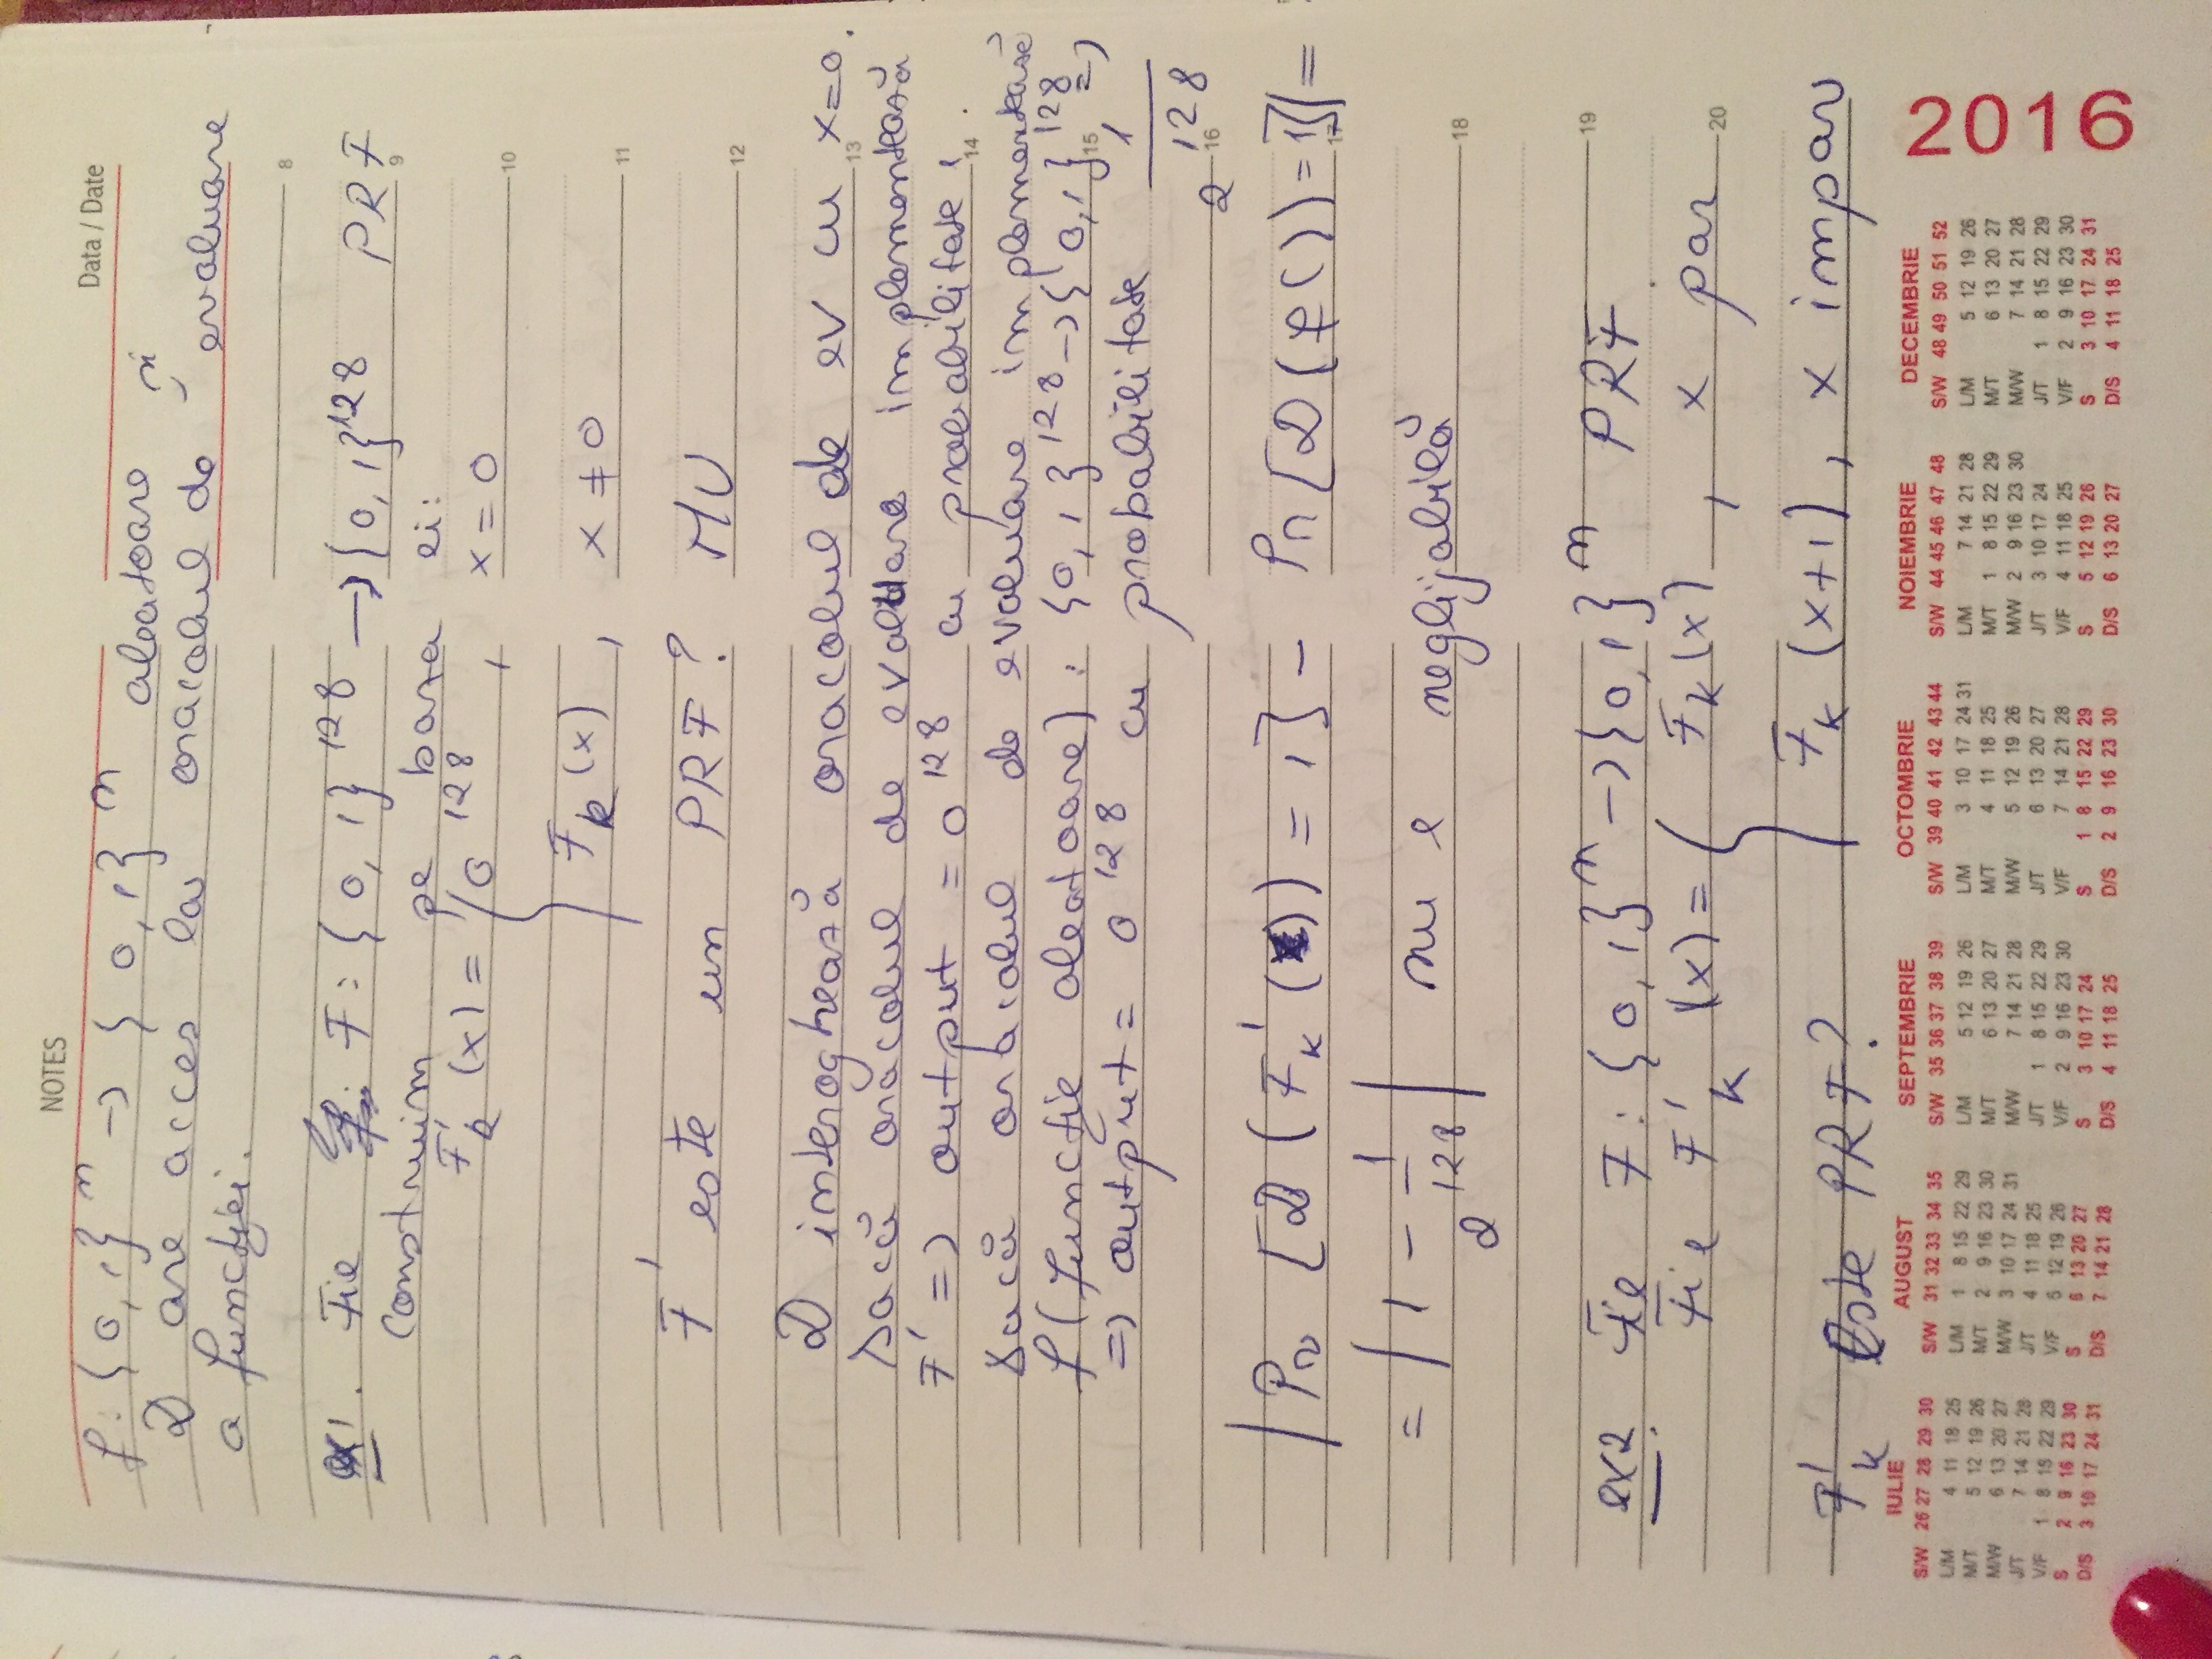 NOTES
Data / Date
f: {0,1}^n -> {0,1}^n aleatoare și
D are acces la oracolul de evaluare
a funcției.
8
ex1. Fie F: {0,1}^128 -> {0,1}^128 PRF
9
construim pe baza ei:
F'k (x) = { 0^128 , x = 0
10
Fk (x) , x ≠ 0
11
F' este un PRF? NU
12
D interoghează oracolul de ev cu x=0.
13
Dacă oracolul de evaluare implementează
F' => output = 0^128 cu probabilitate 1.
14
Dacă oracolul de evaluare implementează
f (funcție aleatoare) : {0,1}^128 -> {0,1}^128 =>
15
=> output = 0^128 cu probabilitate 1/2^128
16
|Pr [D (F'k ( )) = 1] - Pr [D (f()) = 1]| =
17
= |1 - 1/2^128| nu e neglijabilă
18
19
ex2. Fie F: {0,1}^n -> {0,1}^n PRF.
Fie F'k (x) = { Fk (x) , x par
20
Fk (x+1) , x impar
F'k Este PRF?
IULIE
S/W 26 27 28 29 30
L/M 4 11 18 25
M/T 5 12 19 26
M/W 6 13 20 27
J/T 7 14 21 28
V/F 1 8 15 22 29
S 2 9 16 23 30
D/S 3 10 17 24 31
AUGUST
S/W 31 32 33 34 35
L/M 1 8 15 22 29
M/T 2 9 16 23 30
M/W 3 10 17 24 31
J/T 4 11 18 25
V/F 5 12 19 26
S 6 13 20 27
D/S 7 14 21 28
SEPTEMBRIE
S/W 35 36 37 38 39
L/M 5 12 19 26
M/T 6 13 20 27
M/W 7 14 21 28
J/T 1 8 15 22 29
V/F 2 9 16 23 30
S 3 10 17 24
D/S 4 11 18 25
OCTOMBRIE
S/W 39 40 41 42 43 44
L/M 3 10 17 24 31
M/T 4 11 18 25
M/W 5 12 19 26
J/T 6 13 20 27
V/F 7 14 21 28
S 1 8 15 22 29
D/S 2 9 16 23 30
NOIEMBRIE
S/W 44 45 46 47 48
L/M 7 14 21 28
M/T 1 8 15 22 29
M/W 2 9 16 23 30
J/T 3 10 17 24
V/F 4 11 18 25
S 5 12 19 26
D/S 6 13 20 27
DECEMBRIE
S/W 48 49 50 51 52
L/M 5 12 19 26
M/T 6 13 20 27
M/W 7 14 21 28
J/T 1 8 15 22 29
V/F 2 9 16 23 30
S 3 10 17 24 31
D/S 4 11 18 25
2016